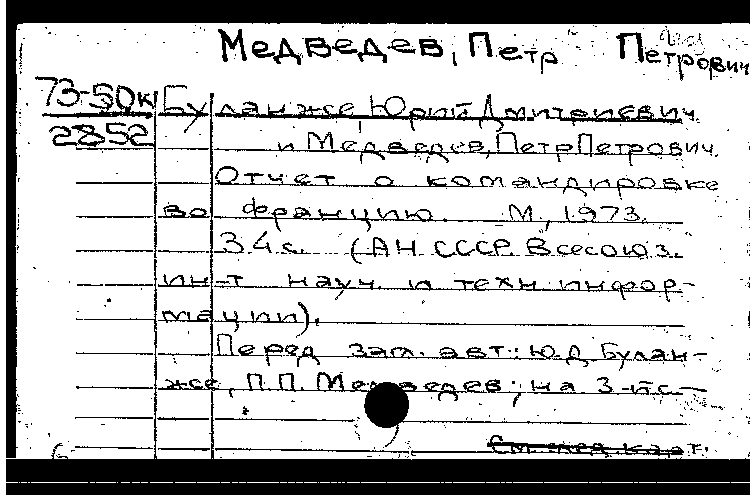 Медведев, Петр Петрович
73-50к Буланже, Юрий Дмитриевич
2852 и Медведев, Петр Петрович.
Отчет о командировке
во Францию. М., 1973.
34 с. (АН СССР. Всесоюз.
ин-т науч. и техн. инфор-
мации).
Перед загл. авт.: Ю.Д. Булан-
же, П.П. Медведев; на 3-й с.—
См. след. карт.